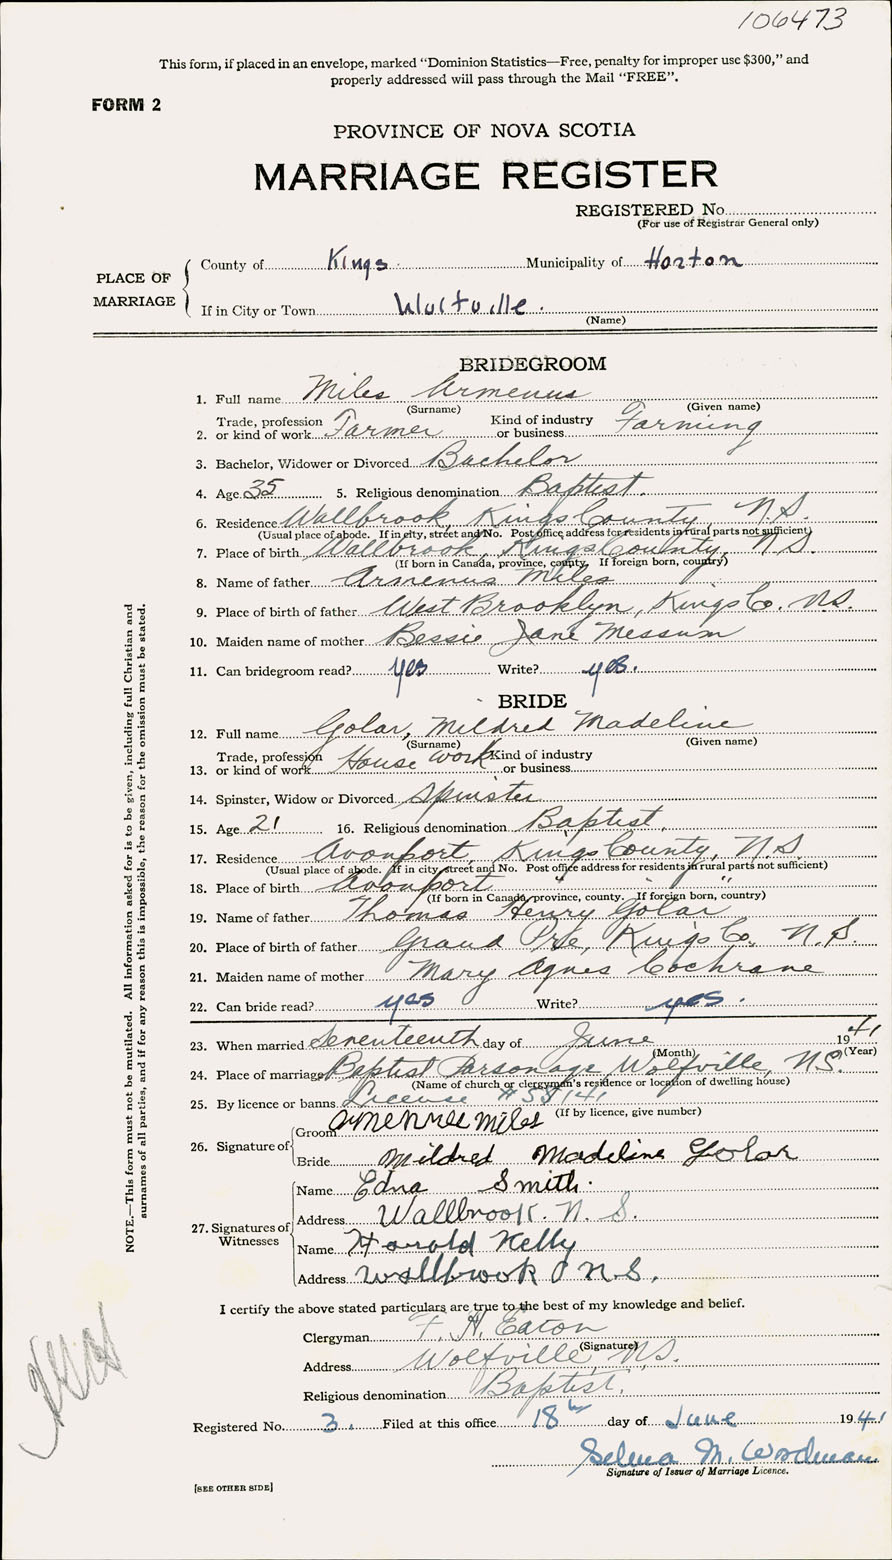 106473
This form, if placed in an envelope, marked "Dominion Statistics—Free, penalty for improper use $300," and
properly addressed will pass through the Mail "FREE".
FORM 2
PROVINCE OF NOVA SCOTIA
MARRIAGE REGISTER
REGISTERED No.
(For use of Registrar General only)
PLACE OF MARRIAGE
County of Kings Municipality of Horton
If in City or Town Wolfville.
(Name)
BRIDEGROOM
1. Full name Miles Armenus
(Surname) (Given name)
2. Trade, profession or kind of work Farmer Kind of industry or business Farming
3. Bachelor, Widower or Divorced Bachelor
4. Age 35 5. Religious denomination Baptist.
6. Residence Wallbrook, Kings County, N.S.
(Usual place of abode. If in city, street and No. Post office address for residents in rural parts not sufficient)
7. Place of birth Wallbrook, Kings County, N.S.
(If born in Canada, province, county. If foreign born, country)
8. Name of father Armenus Miles
9. Place of birth of father West Brooklyn, Kings Co. N.S.
10. Maiden name of mother Bessie Jane Messum
11. Can bridegroom read? yes Write? yes.
BRIDE
12. Full name Golar, Mildred Madeline
(Surname) (Given name)
13. Trade, profession or kind of work House work Kind of industry or business
14. Spinster, Widow or Divorced Spinster
15. Age 21 16. Religious denomination Baptist.
17. Residence Avonport, Kings County, N.S.
(Usual place of abode. If in city, street and No. Post office address for residents in rural parts not sufficient)
18. Place of birth Avonport " "
(If born in Canada, province, county. If foreign born, country)
19. Name of father Thomas Henry Golar
20. Place of birth of father Grand Pre, Kings Co. N.S.
21. Maiden name of mother Mary Agnes Cochrane
22. Can bride read? yes Write? yes.
23. When married Seventeenth day of June 1941
(Month) (Year)
24. Place of marriage Baptist Parsonage Wolfville, N.S.
(Name of church or clergyman's residence or location of dwelling house)
25. By licence or banns License
(If by licence, give number)
26. Signature of
Groom Miles
Bride Mildred Madeline Golar
27. Signatures of Witnesses
Name Edna Smith.
Address Wallbrook. N. S.
Name Harold Kelly
Address Wallbrook N.S.
I certify the above stated particulars are true to the best of my knowledge and belief.
Clergyman F. H. Eaton
(Signature)
Address Wolfville, N.S.
Religious denomination Baptist.
Registered No. 3. Filed at this office 18th day of June 1941
Selma M. Wordman
Signature of Issuer of Marriage Licence.
[SEE OTHER SIDE]
NOTE.—This form must not be mutilated. All Information asked for is to be given, including full Christian and
surnames of all parties, and if for any reason this is impossible, the reason for the omission must be stated.